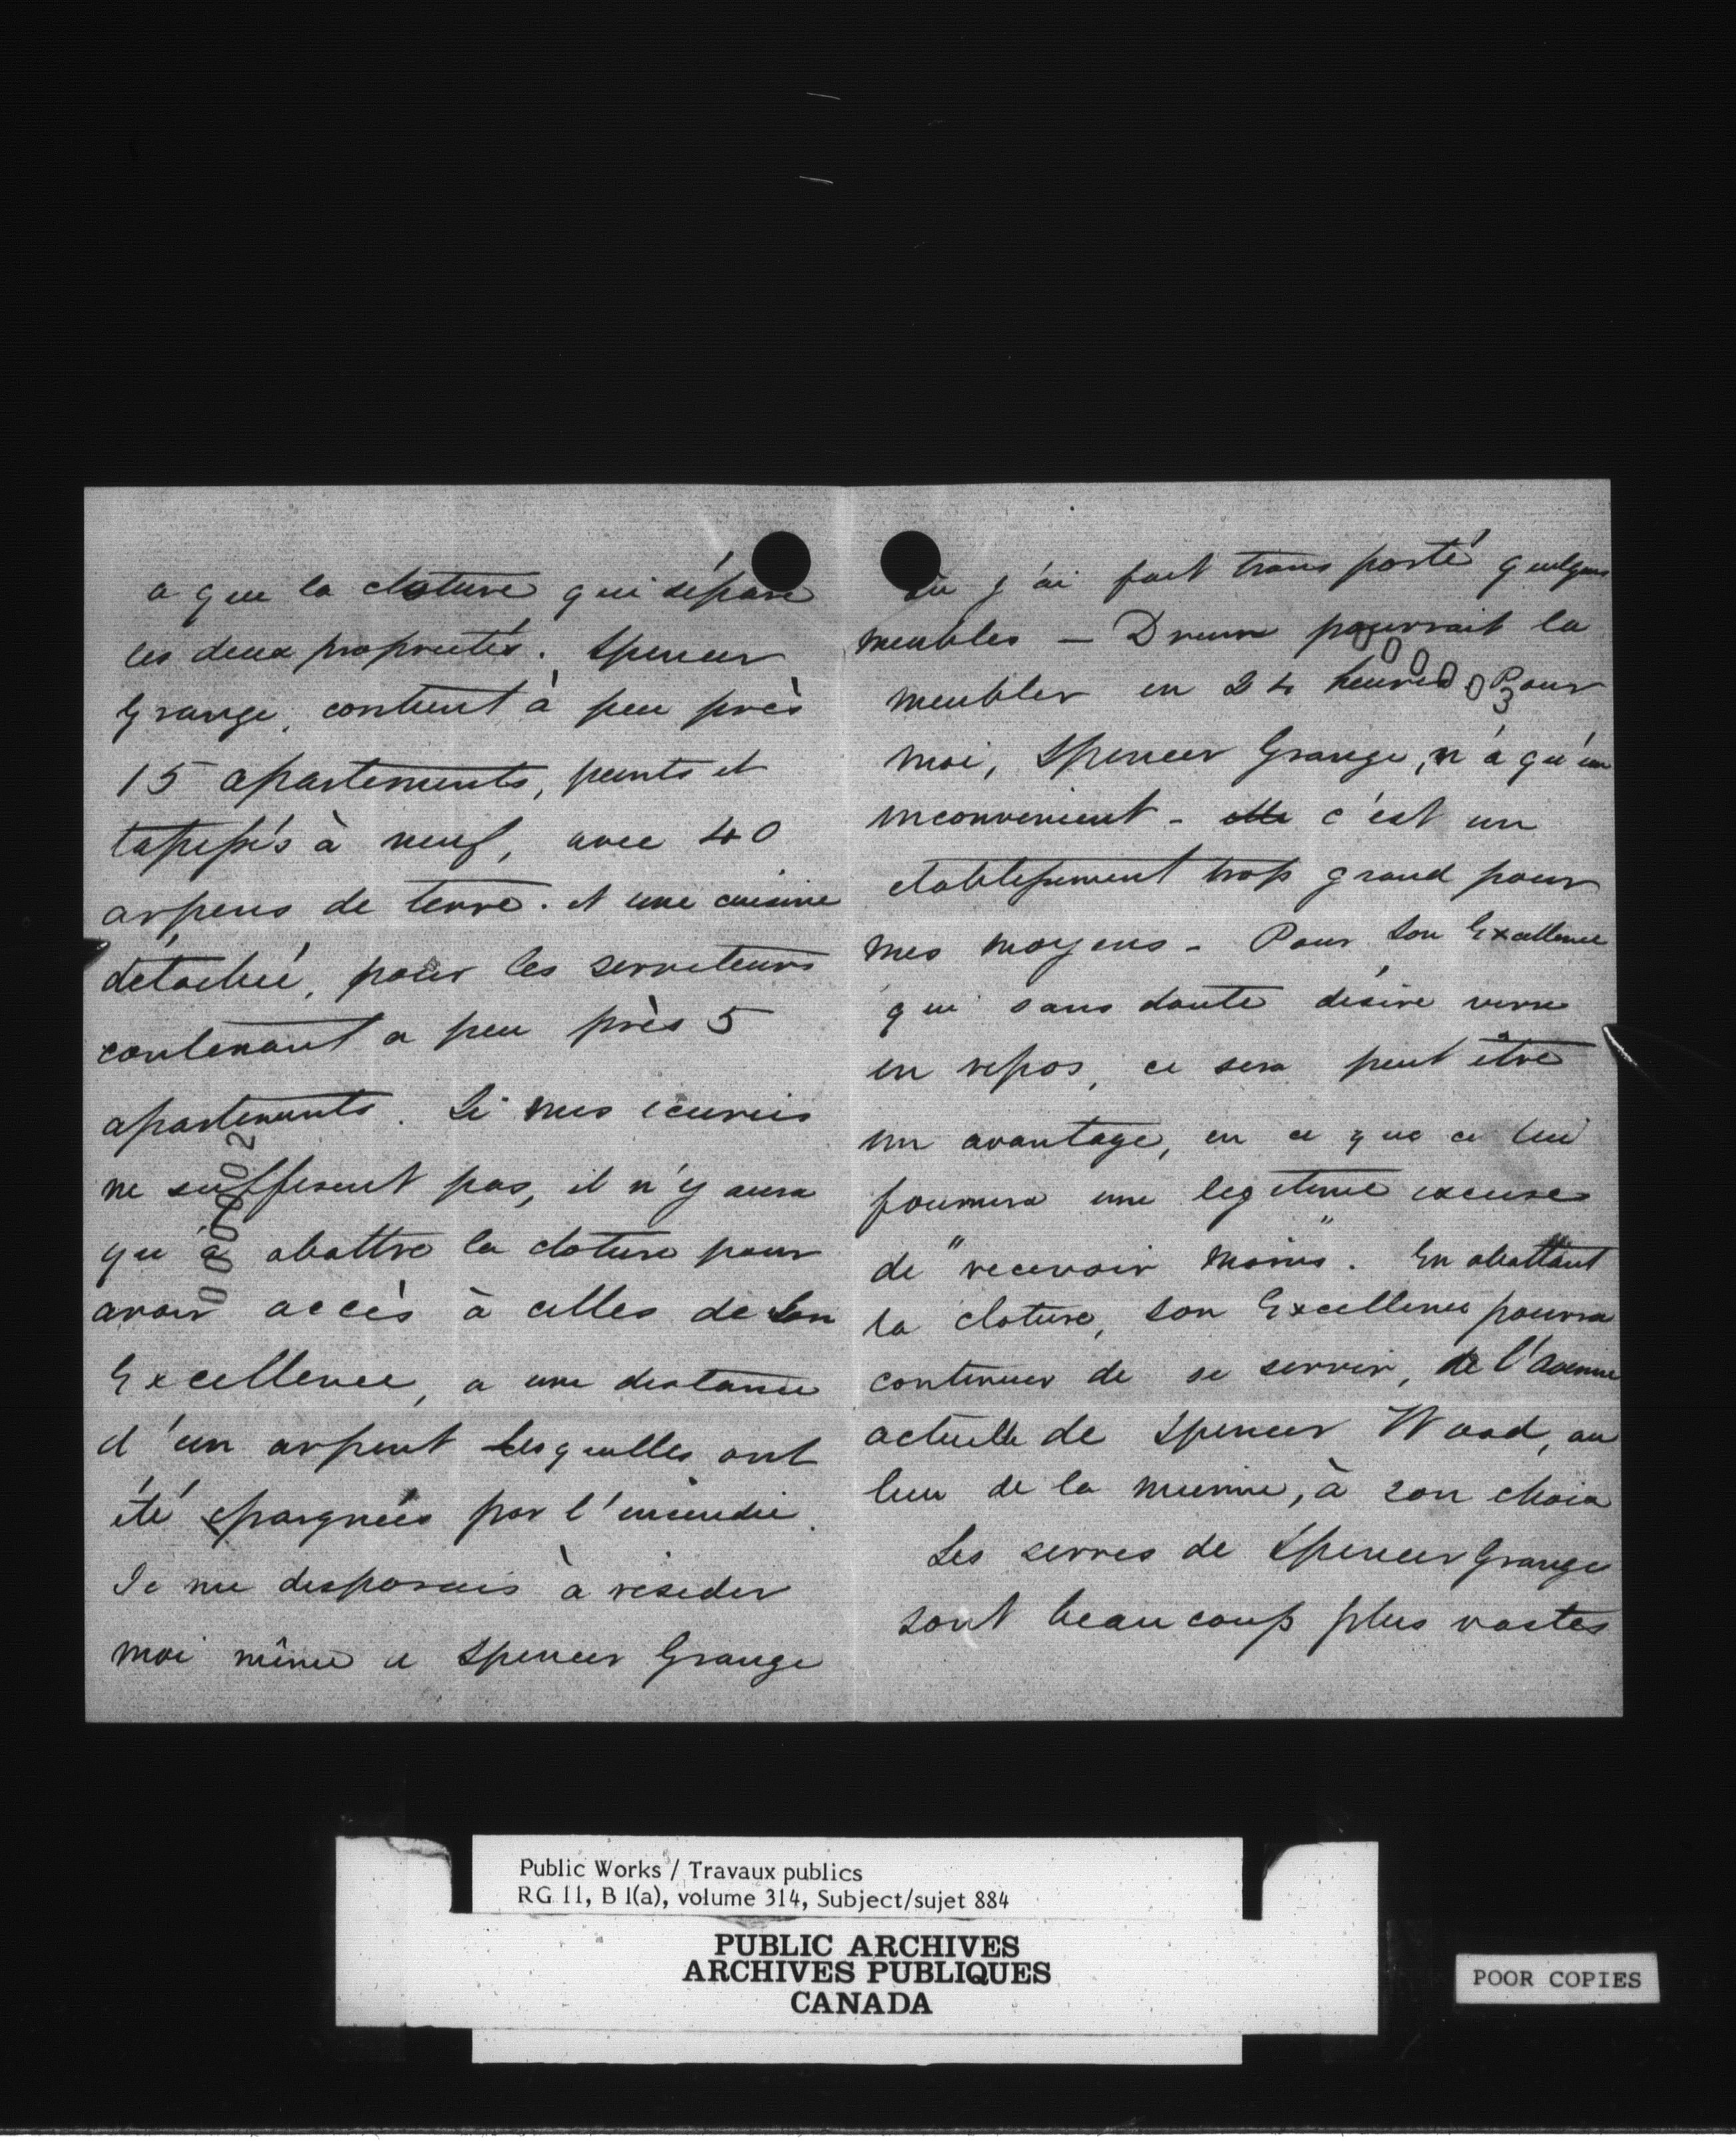 a que la cloture qui sépare
les deux proprietés. Spencer
Grange, contient à peu près
15 apartements, peints et
tapissés à neuf, avec 40
arpens de terre. et une cuisine
détachée, pour les serviteurs
contenant a peu près 5
apartements. Si mes ecuries
ne suffisent pas, il n'y aura
qu'à abattre la cloture pour
avoir accès à celles de Son
Excellence, a une distance
d'un arpent lesquelles ont
été epargnées par l'incendie.
Je me disposais à resider
moi même a Spencer Grange
000002
où j'ai fait transporté quelques
meubles — Drum pourrait la
meubler en 24 heures. Pour
000003
moi, Spencer Grange, n'a qu'un
inconvenient - c'est un
etablissement trop grand pour
mes moyens - Pour Son Excellence
qui sans doute désire vivre
en repos, ce sera peut être
un avantage, en ce que ce lui
fournira une legitime excuse
de "recevoir moins". En abattant
la cloture, Son Excellence pourra
continuer de se servir, de l'avenue
actuelle de Spencer Wood, au
lieu de la mienne, à son choix
Les serres de Spencer Grange
sont beaucoup plus vastes
Public Works / Travaux publics
RG 11, B 1(a), volume 314, Subject/sujet 884
PUBLIC ARCHIVES
ARCHIVES PUBLIQUES
CANADA
POOR COPIES